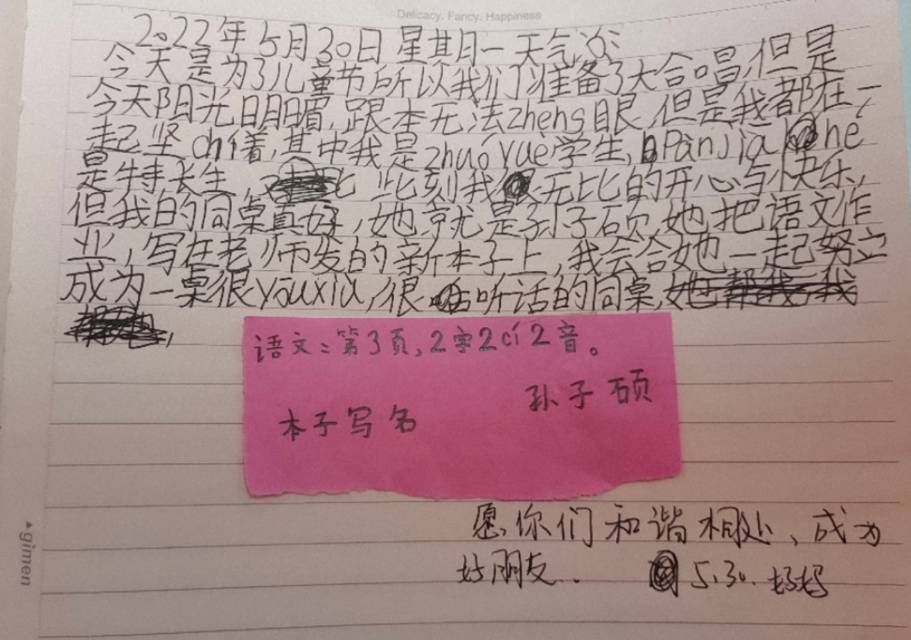 Delicacy. Fancy. Happiness
2022年5月30日星期一天气
今天是为了儿童节所以我们准备了大合唱,但是
今天阳光明眉,跟本无法zheng眼,但是我都在一
起坚chí着,其中我是zhuó yuè学生,
是特长生,此刻我无比的开心与快乐,
但我的同桌真好,她就是孙子硕,她把语文作
业,写在老师发的新本子上,我会给她一起努立
成为一桌很youxiu,很听话的同桌,
语文:第3页,2字2cí2音。
孙子硕
本子写名
愿你们和谐相处、成为
好朋友. 5.30. 妈妈
gimen